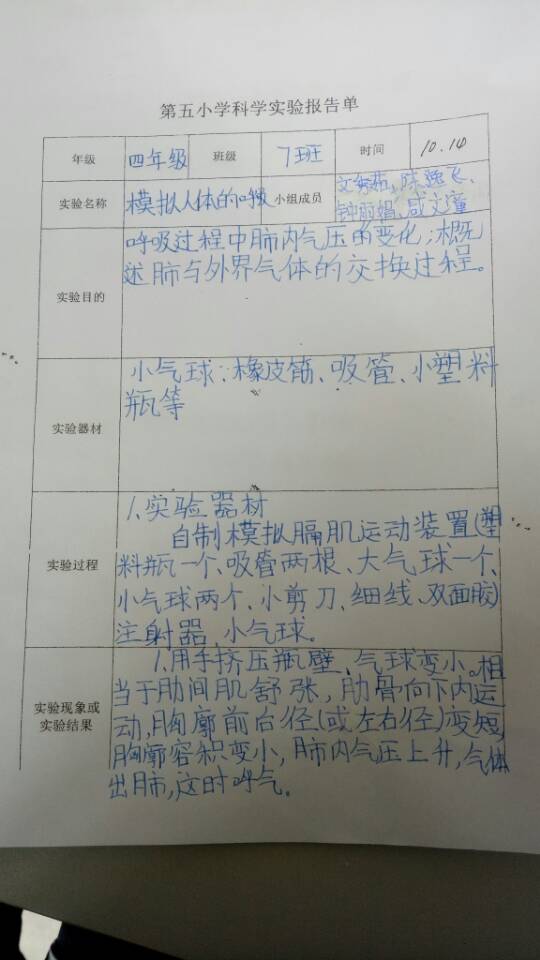 第五小学科学实验报告单
年级 四年级 班级 7班 时间 10.10
实验名称 模拟人体的呼吸 小组成员 陈逸飞、
实验目的
呼吸过程中肺内气压的变化；概
述肺与外界气体的交换过程。
实验器材
小气球、橡皮筋、吸管、小塑料
瓶等
实验过程
1、实验器材
自制模拟膈肌运动装置(塑
料瓶一个、吸管两根、大气球一个、
小气球两个、小剪刀、细线、双面胶)
注射器、小气球。
实验现象或
实验结果
1.用手挤压瓶壁、气球变小。相
当于肋间肌舒张，肋骨向下内运
动，胸廓前后径(或左右径)变短，
胸廓容积变小，肺内气压上升，气体
出肺，这时呼气。